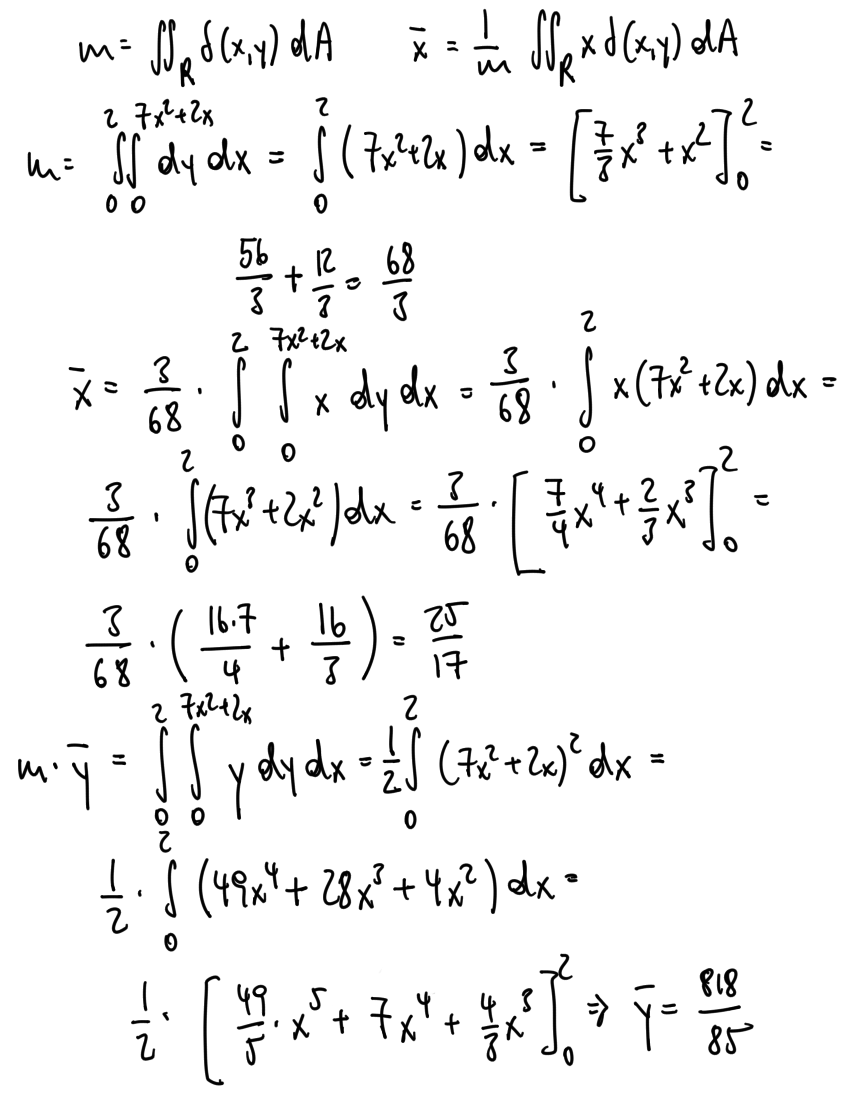 m = ∬_R δ(x,y) dA    x̄ = 1/m ∬_R x δ(x,y) dA
m = ∫_0^2 ∫_0^{7x²+2x} dy dx = ∫_0^2 (7x²+2x) dx = [7/3 x³ + x²]_0^2 =
56/3 + 12/3 = 68/3
x̄ = 3/68 · ∫_0^2 ∫_0^{7x²+2x} x dy dx = 3/68 · ∫_0^2 x(7x²+2x) dx =
3/68 · ∫_0^2 (7x³+2x²) dx = 3/68 · [7/4 x⁴ + 2/3 x³]_0^2 =
3/68 · (16·7/4 + 16/3) = 25/17
m · ȳ = ∫_0^2 ∫_0^{7x²+2x} y dy dx = 1/2 ∫_0^2 (7x²+2x)² dx =
1/2 · ∫_0^2 (49x⁴ + 28x³ + 4x²) dx =
1/2 · [49/5 · x⁵ + 7x⁴ + 4/3 x³]_0^2 ⇒ ȳ = 818/85